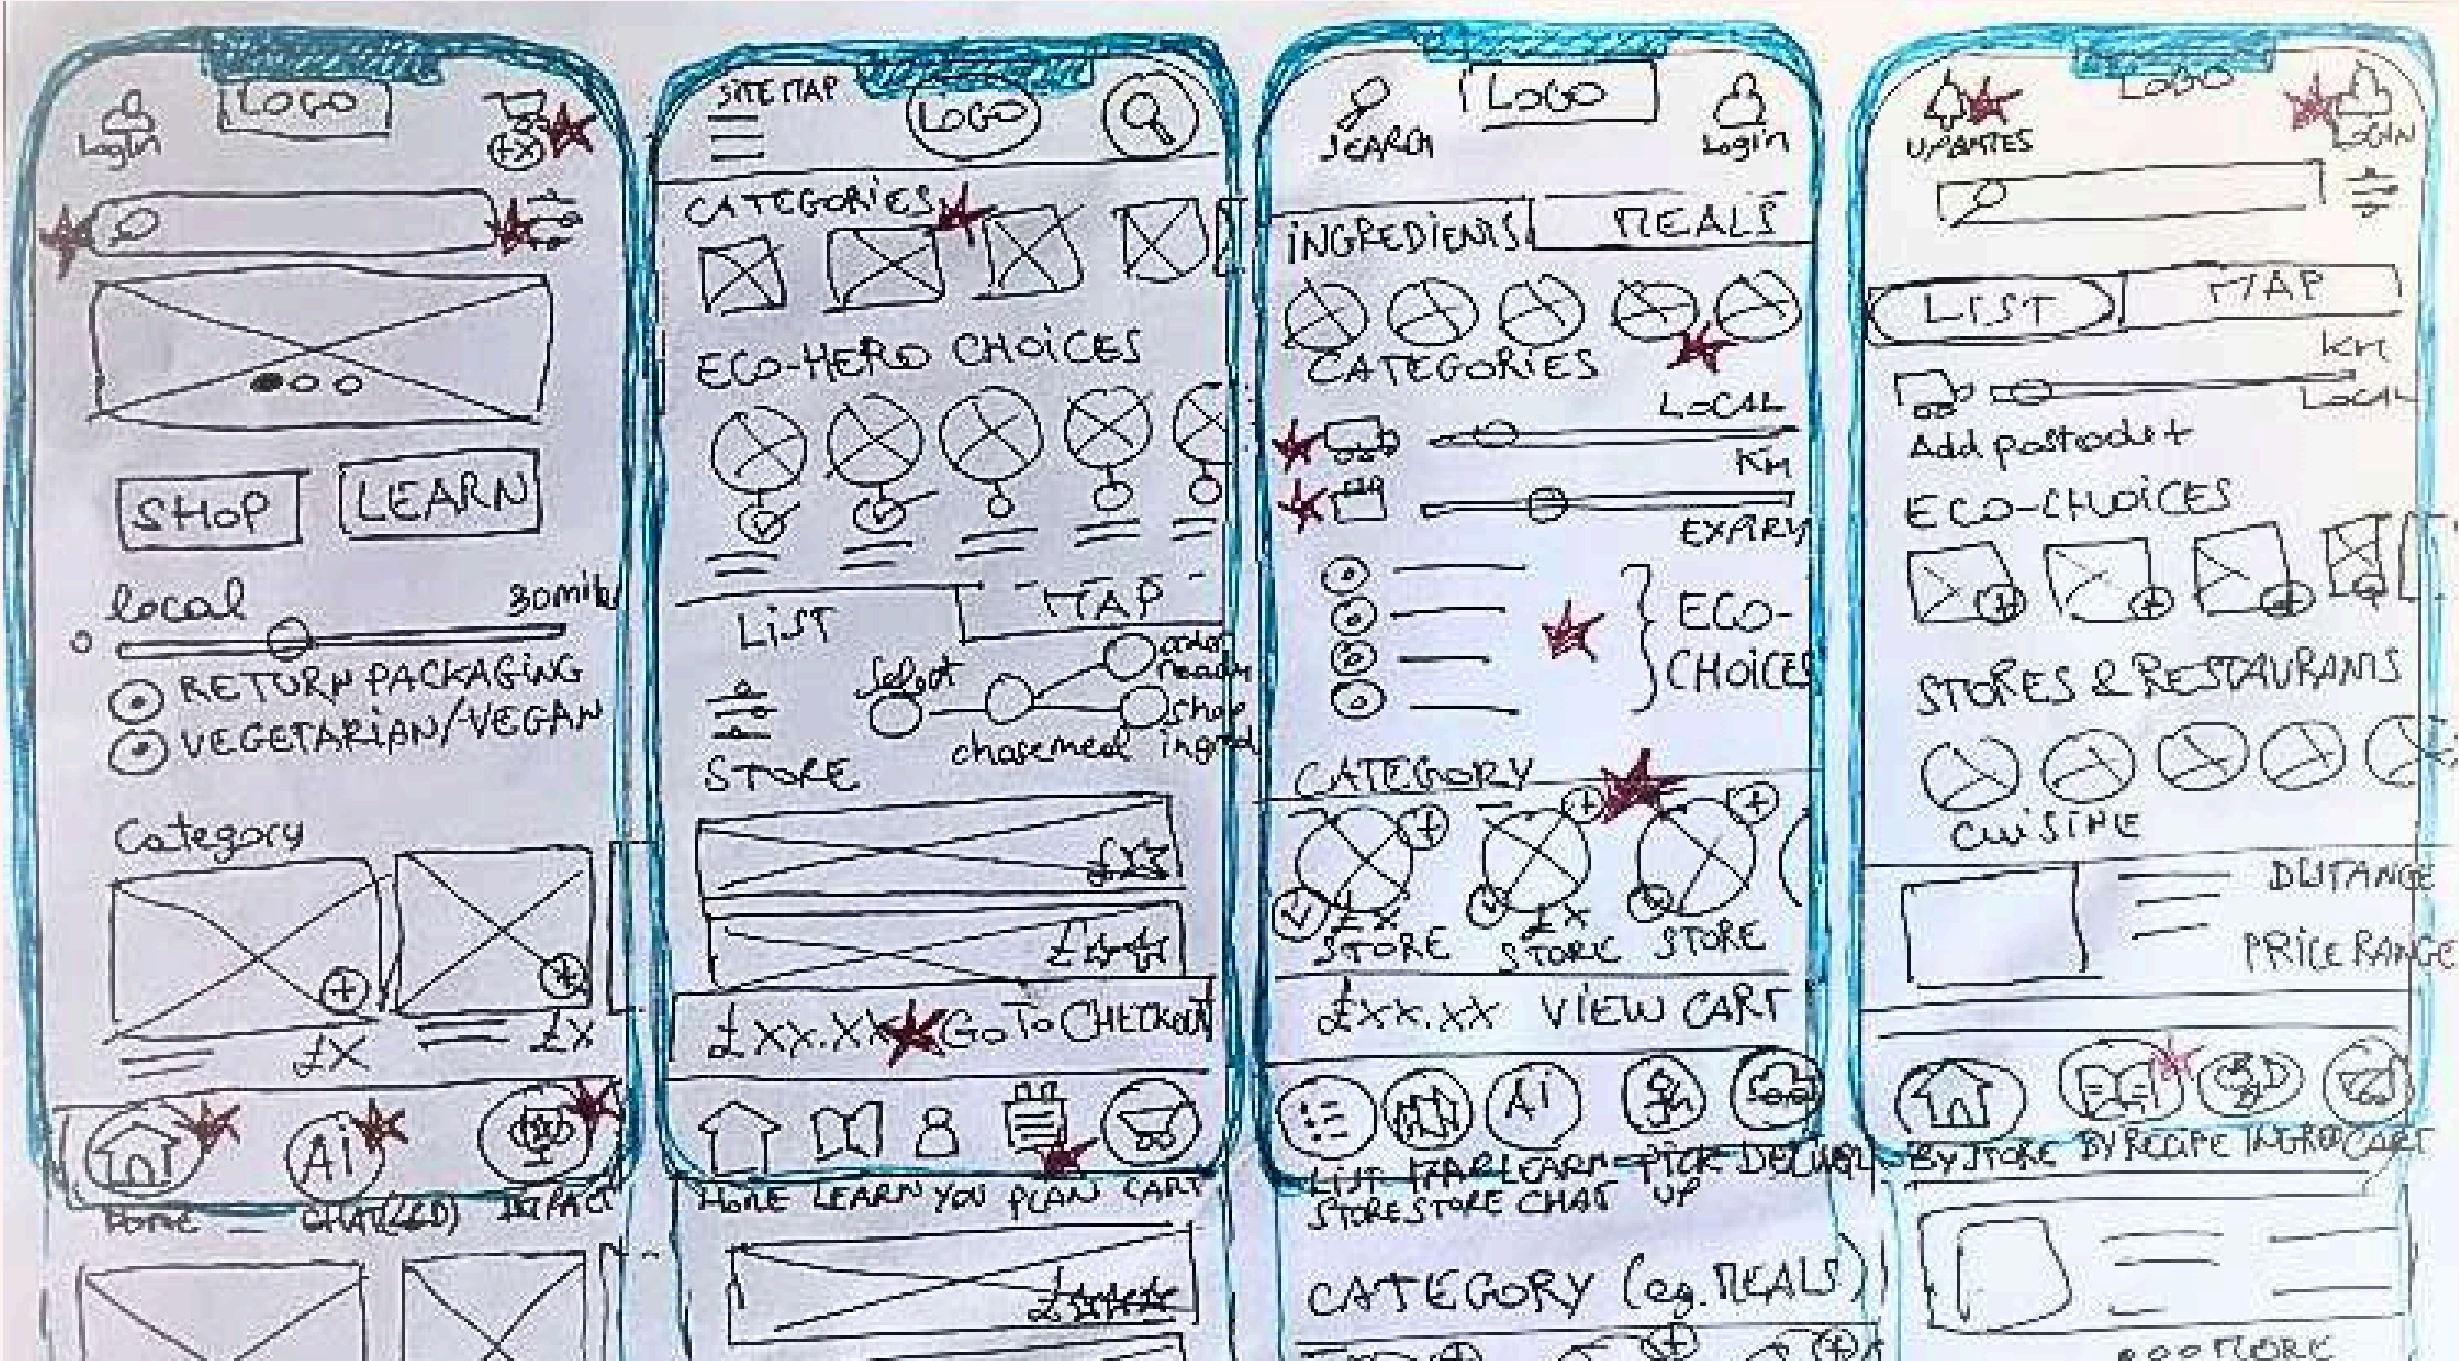 Login
LOGO
+x
SHOP
LEARN
local
30miles
0
RETURN PACKAGING
VEGETARIAN/VEGAN
Category
£X
£X
Ai
HOME
CHAT(LCD)
IMPACT
SITE MAP
LOGO
CATEGORIES
ECO-HERO CHOICES
LIST
MAP
Select
order
ready
shop
ingred
chosemeal
STORE
£xx
£XX.XX
GO TO CHECKOUT
HOME LEARN YOU PLAN CART
SEARCH
LOGO
Login
INGREDIENTS
MEALS
CATEGORIES
LOCAL
KM
EXPIRY
ECO-
CHOICES
CATEGORY
£X
STORE
£X
STORE
STORE
£XX.XX VIEW CART
Ai
LIST MAP LEARN PICK DELIVER
STORE STORE CHAT UP
CATEGORY (eg. MEALS)
UPDATES
LOGO
LOGIN
LIST
MAP
KM
LOCAL
Add postcode +
ECO-CHOICES
STORES & RESTAURANTS
CUISINE
DISTANCE
PRICE RANGE
BY STORE BY RECIPE INGRED CART
MORE